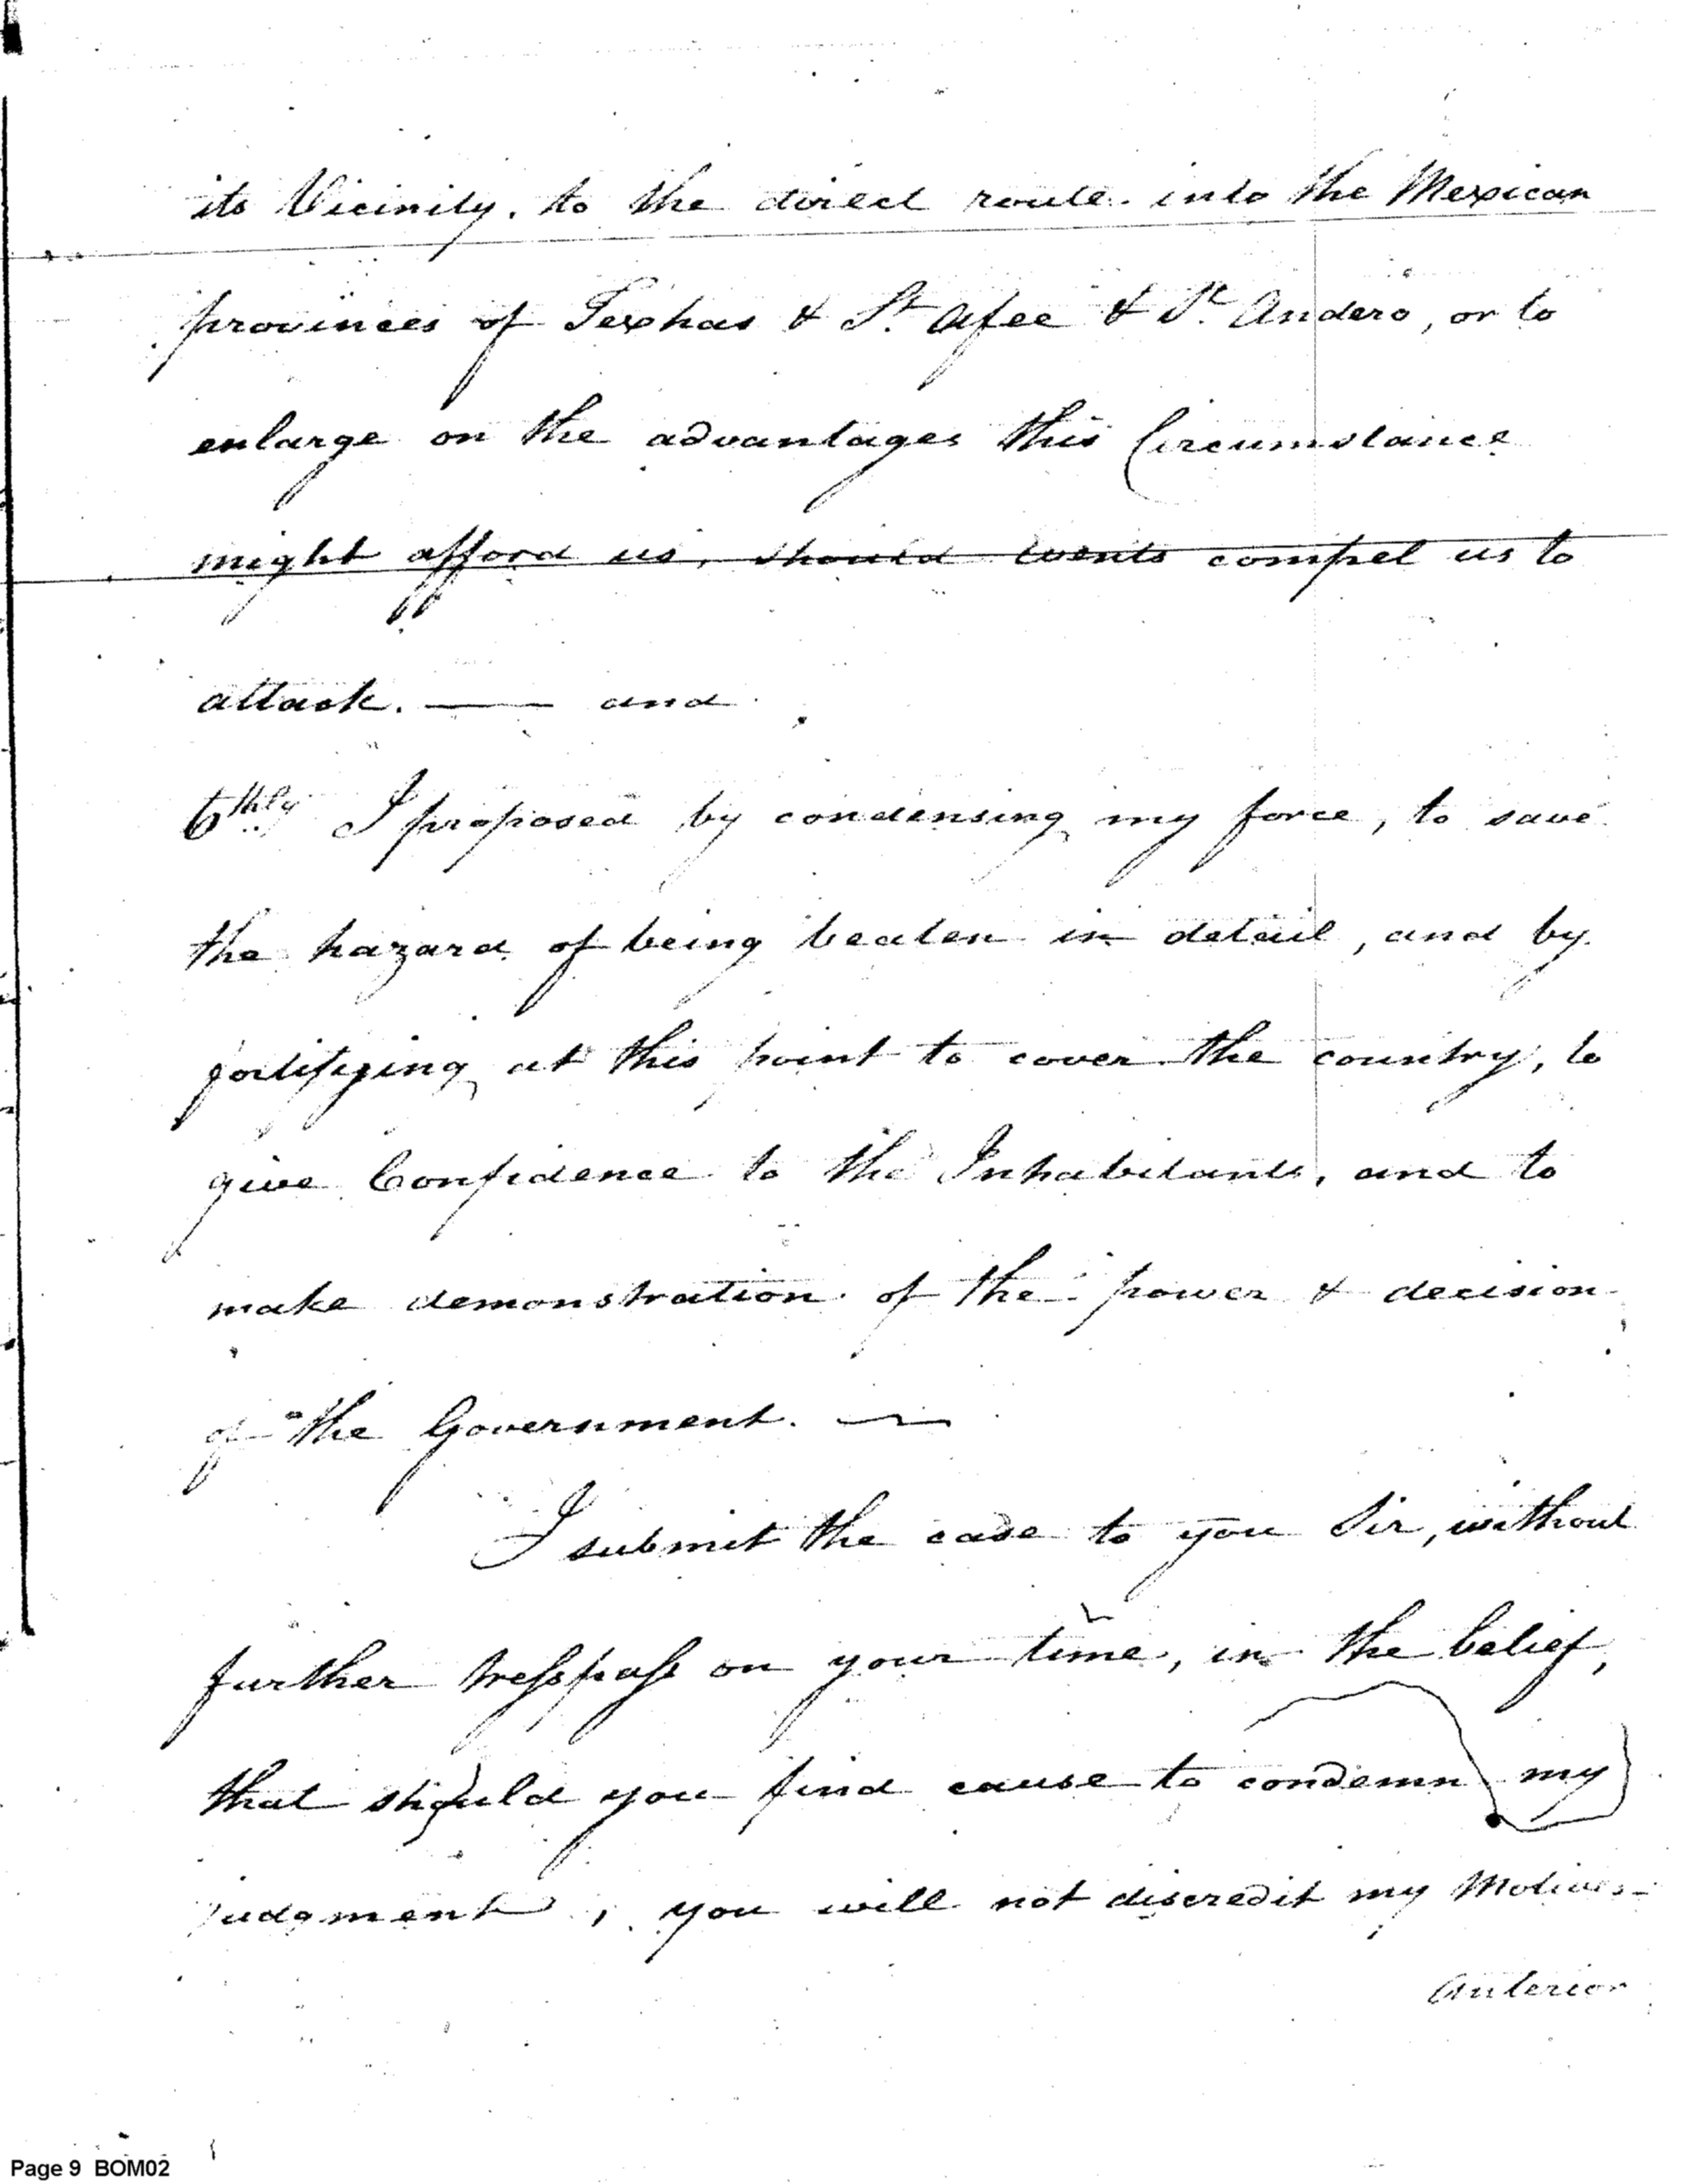 its Vicinity, to the direct route into the Mexican
provinces of Texhas & St. Afee & St. Andero, or to
enlarge on the advantages this Circumstance
might afford us, should events compel us to
attack. —— and
6thly I proposed by condensing my force, to save
the hazard of being beaten in detail, and by
fortifying at this point to cover the country, to
give Confidence to the Inhabitants, and to
make demonstration of the power & decision
of the Government. —
I submit the case to you Sir, without
further tresspass on your time, in the belief,
that should you find cause to condemn my
judgment, you will not discredit my Motives
Anterior
Page 9 BOM02